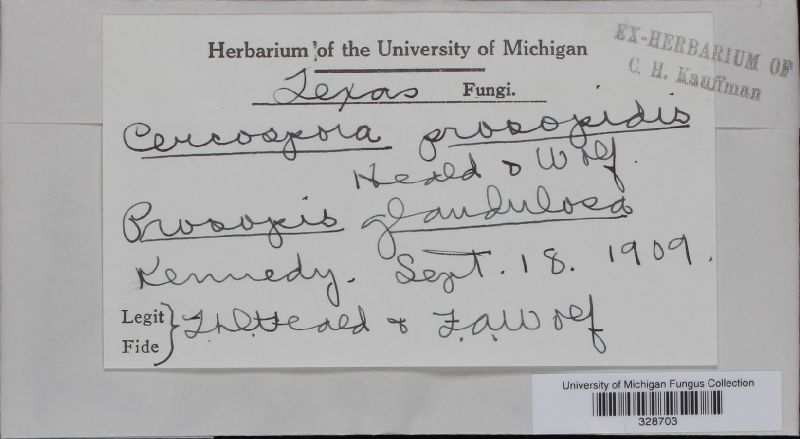 Herbarium of the University of Michigan
EX-HERBARIUM OF
C. H. Kauffman
Texas Fungi.
Cercospora prosopidis
Heald & Wolf.
Prosopis glandulosa
Kennedy. Sept. 18. 1909.
Legit
Fide
F.D. Heald & F.A. Wolf
University of Michigan Fungus Collection
328703